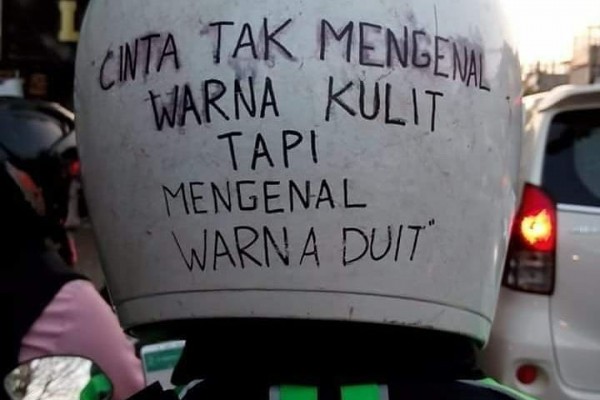 "CINTA TAK MENGENAL
WARNA KULIT
TAPI
MENGENAL
WARNA DUIT"